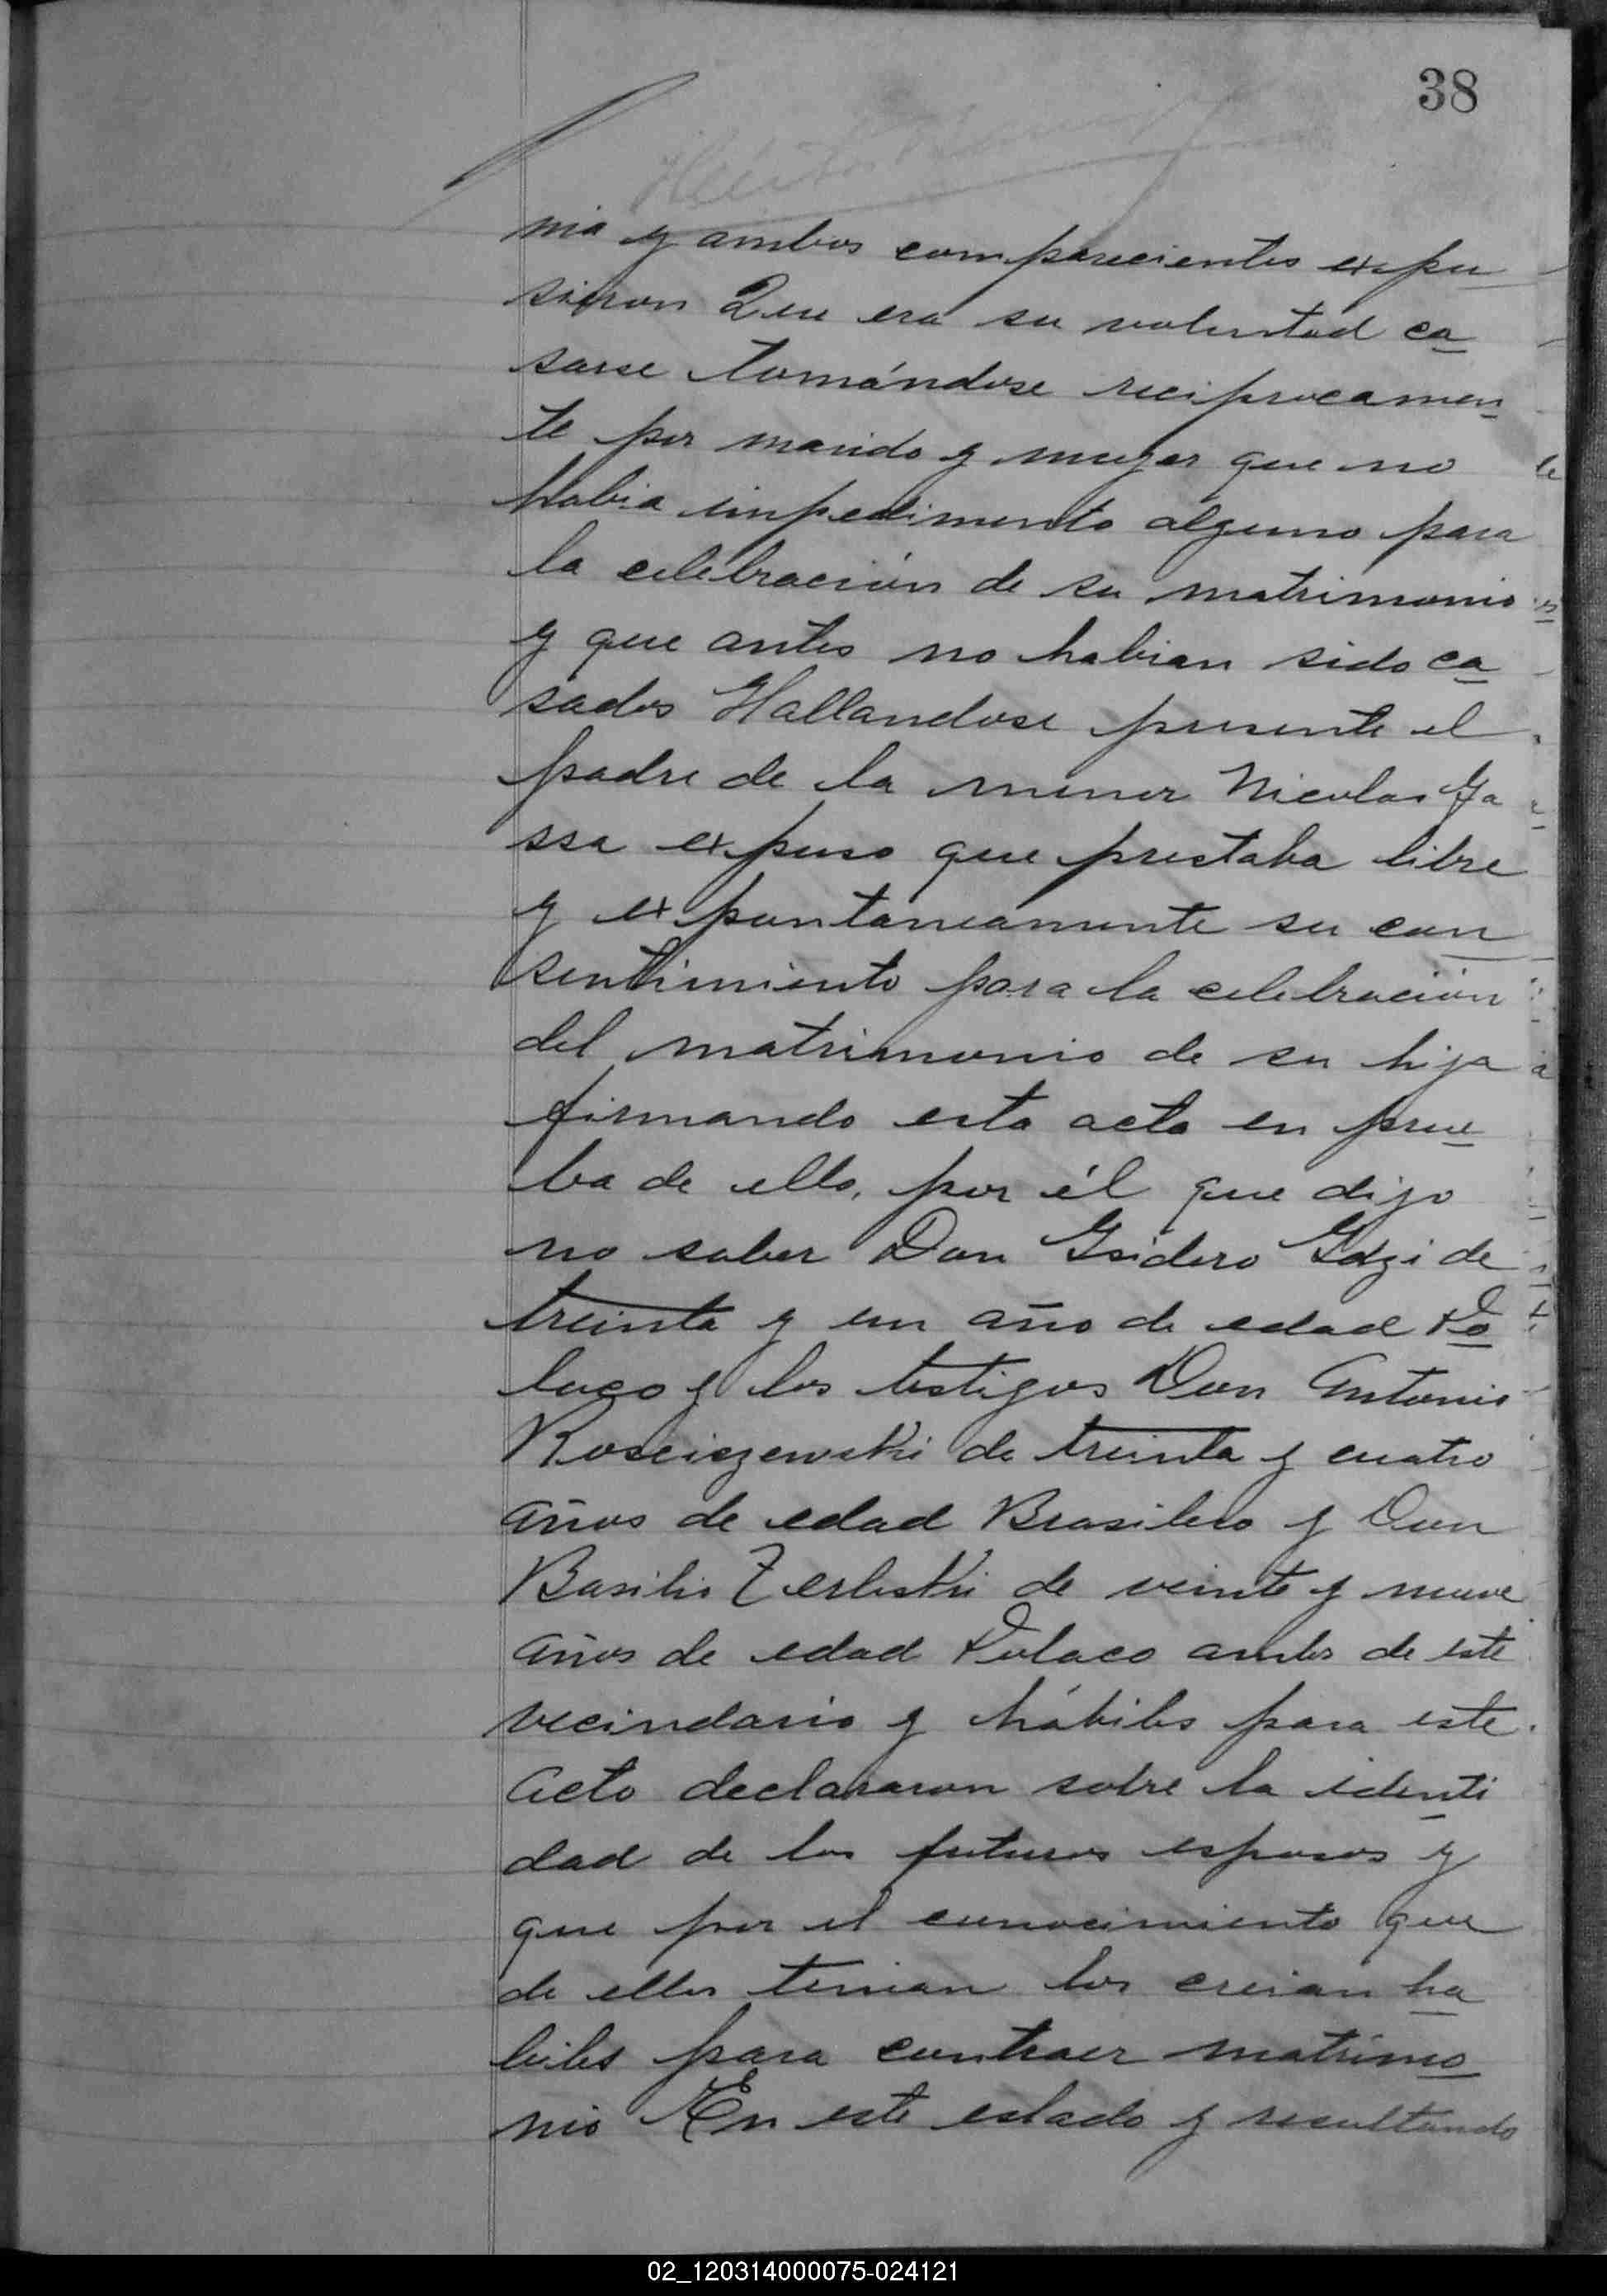 38
nia y ambos comparecientes expu
sieron Que era su voluntad ca
sarse tomándose reciprocamen
te por marido y mujer que no
habia impedimento alguno para
la celebración de su matrimonio
y que antes no habian sido ca
sados Hallandose presente el
padre de la menor Nicolas Ya
ssa expuso que prestaba libre
y expontaneamente su con
sentimiento para la celebración
del matrimonio de su hija
firmando esta acta en prue
ba de ello, por él que dijo
no saber Don Ysidoro de
treinta y un año de edad Po
laco y los testigos Don Antonio
Rosciszewski de treinta y cuatro
años de edad Brasilero y Don
Basilio Zerbiski de veinte y nueve
años de edad Polaco ambos de este
vecindario y hábiles para este
acto declararon sobre la identi
dad de los futuros esposos y
que por el conocimiento que
de ellos tenian los creian ha
biles para contraer matrimo
nio En este estado y resultando
02_120314000075-024121